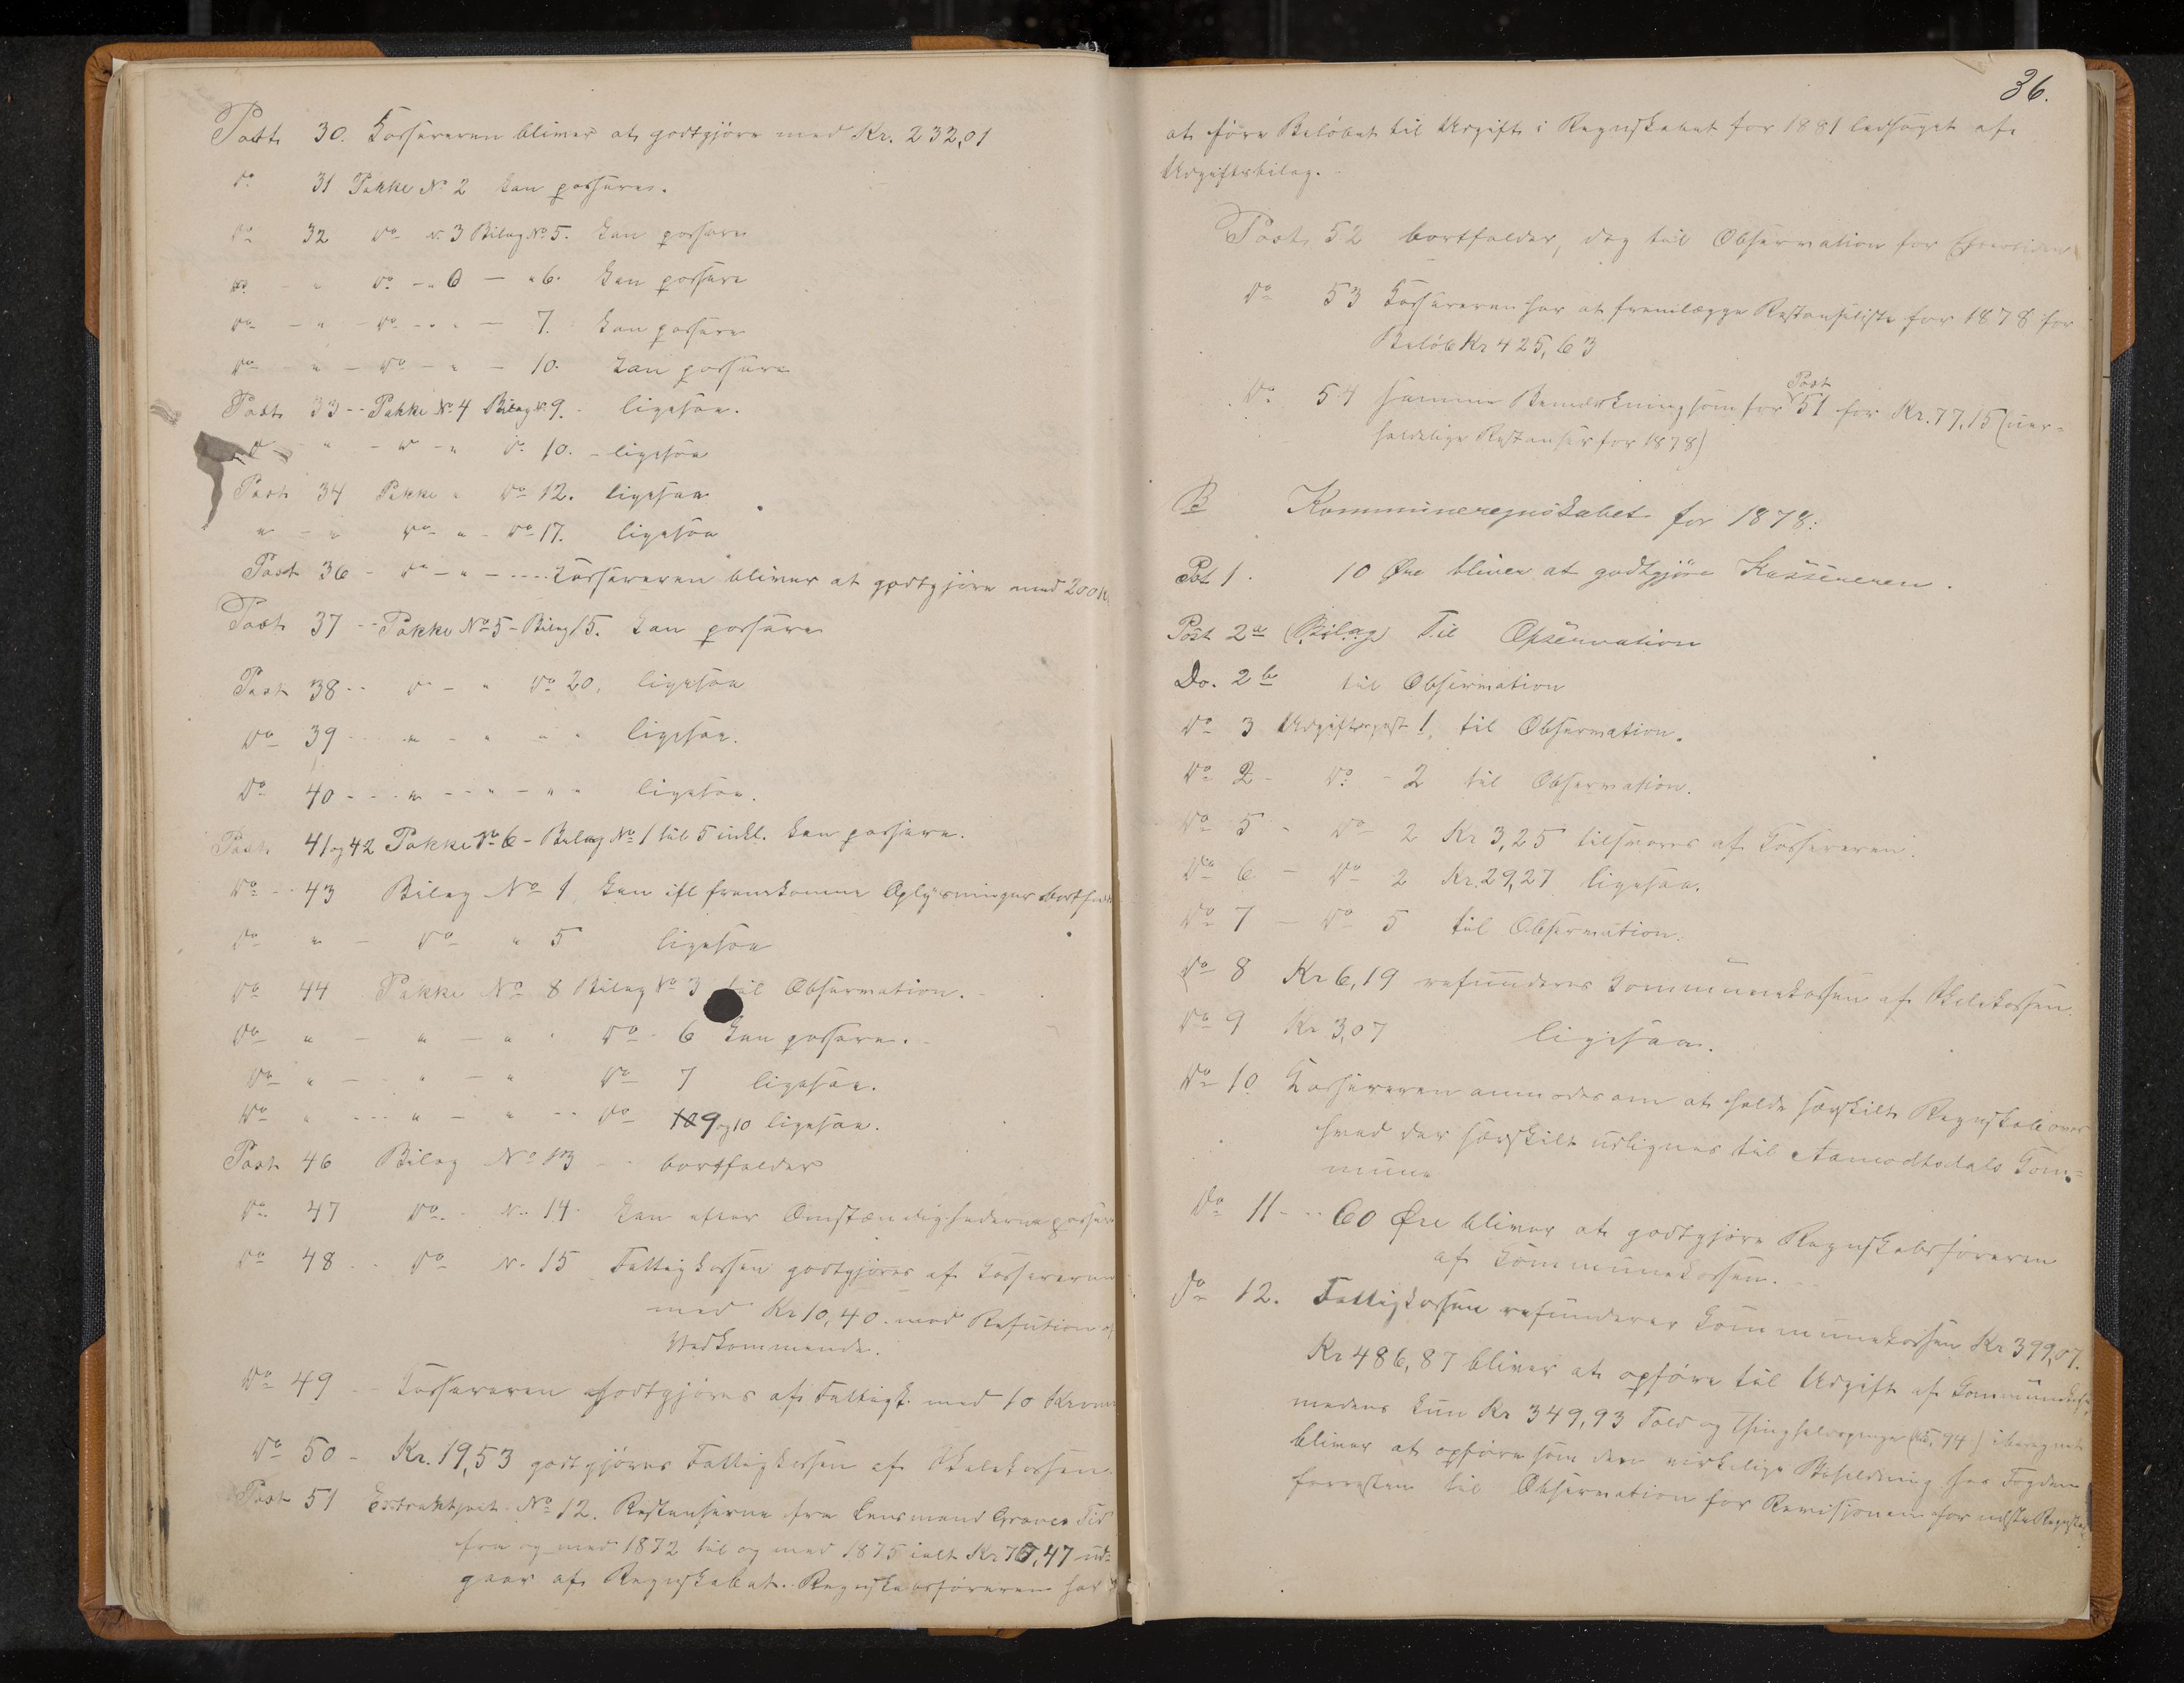 Post 30. Kassereren bliver at godtgjöre med Kr. 232,01
do 31 Pakke No 2 kan passeres.
do 32 do N. 3 Bilag No 5. kan passere
do - " do - " 6 - " 6. kan passere
do - " - do - " - 7. kan passere
do - " - do - " - 10. kan passere
Post 33 -- Pakke No 4 Bilag No 9. ligesaa.
do - " - do - " do 10. - ligesaa
Post 34 Pakke " do 12. ligesaa
" - " do " - do 17. ligesaa
Post 36 - do - " - .... Kassereren bliver at godtgjöre med 200 K
Post 37 -- Pakke No 5 - Bilag 15. kan passere
Post 38 -- do - " do 20. ligesaa
do 39 -- " - " - " ligesaa.
do 40 - - " - - " - " " ligesaa.
Post 41 og 42 Pakke No 6 - Bilag No 1 til 5 inkl. kan passere.
do -- 43 Bilag No 1, kan ifl fremkomne Oplysninger bortfald
do " - do " 5 ligesaa
do 44 Pakke No 8 Bilag No 3 til Observation. -
do " - " - " do - 6 kan passere. -
do " - " - " do 7 ligesaa.
do " --- " - " -- do 9 og 10 ligesaa.
Post 46 Bilag No 13 -- bortfalder
do 47 do - N. 14. kan efter Omstændighederne passer
do 48 .. do N. 15 Fattigkassen godtgjöres af Kassereren
med Kr 10,40. mod Refution
Vedkommende.
do 49 -- Kassereren godtgjöres af Fattigk. med 10 Kroner
do 50 - Kr. 19,53 godtgjöres Fattigkassen af Skolekassen.
Post 51 Extraktpost No 12. Restanserne fra Lensmand Graves Tid
fra og med 1872 til og med 1875 ialt Kr 7,47 ud-
gaar af Regnskabet. Regnskabsföreren har
36.
at före Belöbet til Udgift i Regnskabet for 1881 ledsaget af
Udgiftsbilag. -
Post 52 bortfalder, dog til Observation for
do 53 Kassereren har at fremlægge Restanseliste for 1878 for
Belöb Kr 425,63
do 54 samme Bemærkning som for Post 51 for Kr. 77,15 (uer-
holdelige Restanser for 1878)
B Kommuneregnskabet for 1878:
Pst 1. 10 Øre bliver at godtgjöre Kassereren.
Post 2a (Bilag) Til Opservation
Do. 2b til Observation
do 3 Udgiftspost 1. til Observation.
do 2 - do - 2 til Observation.
do 5 - do 2 Kr 3,25 tilsvares af Kassereren.
do 6 - do 2 Kr. 29,27 ligesaa.
do 7 - do 5 til Observation.
do 8 Kr 6,19 refunderes Kommunekassen af Skolekassen.
do 9 Kr 3,07 ligesaa.
do 10 Kassereren anmodes om at holde særskilt Regnskab over
hvad der særskilt udlignes til Aamodtsdals Kom-
mune
do 11 -- 60 Øre bliver at godtgjöre Regnskabsföreren
af Kommunekassen. --
do 12. Fattigkassen refunderer Kommunekassen Kr 399,07.
Kr 486,87 bliver at opföre til Udgift af Kommunekas,
medens kun Kr 349,93 Told og iberegnet
bliver at opföre som den virkelige Beholdning hos Fogden
foresten til Observation for Revisjonen for næste Regnskab